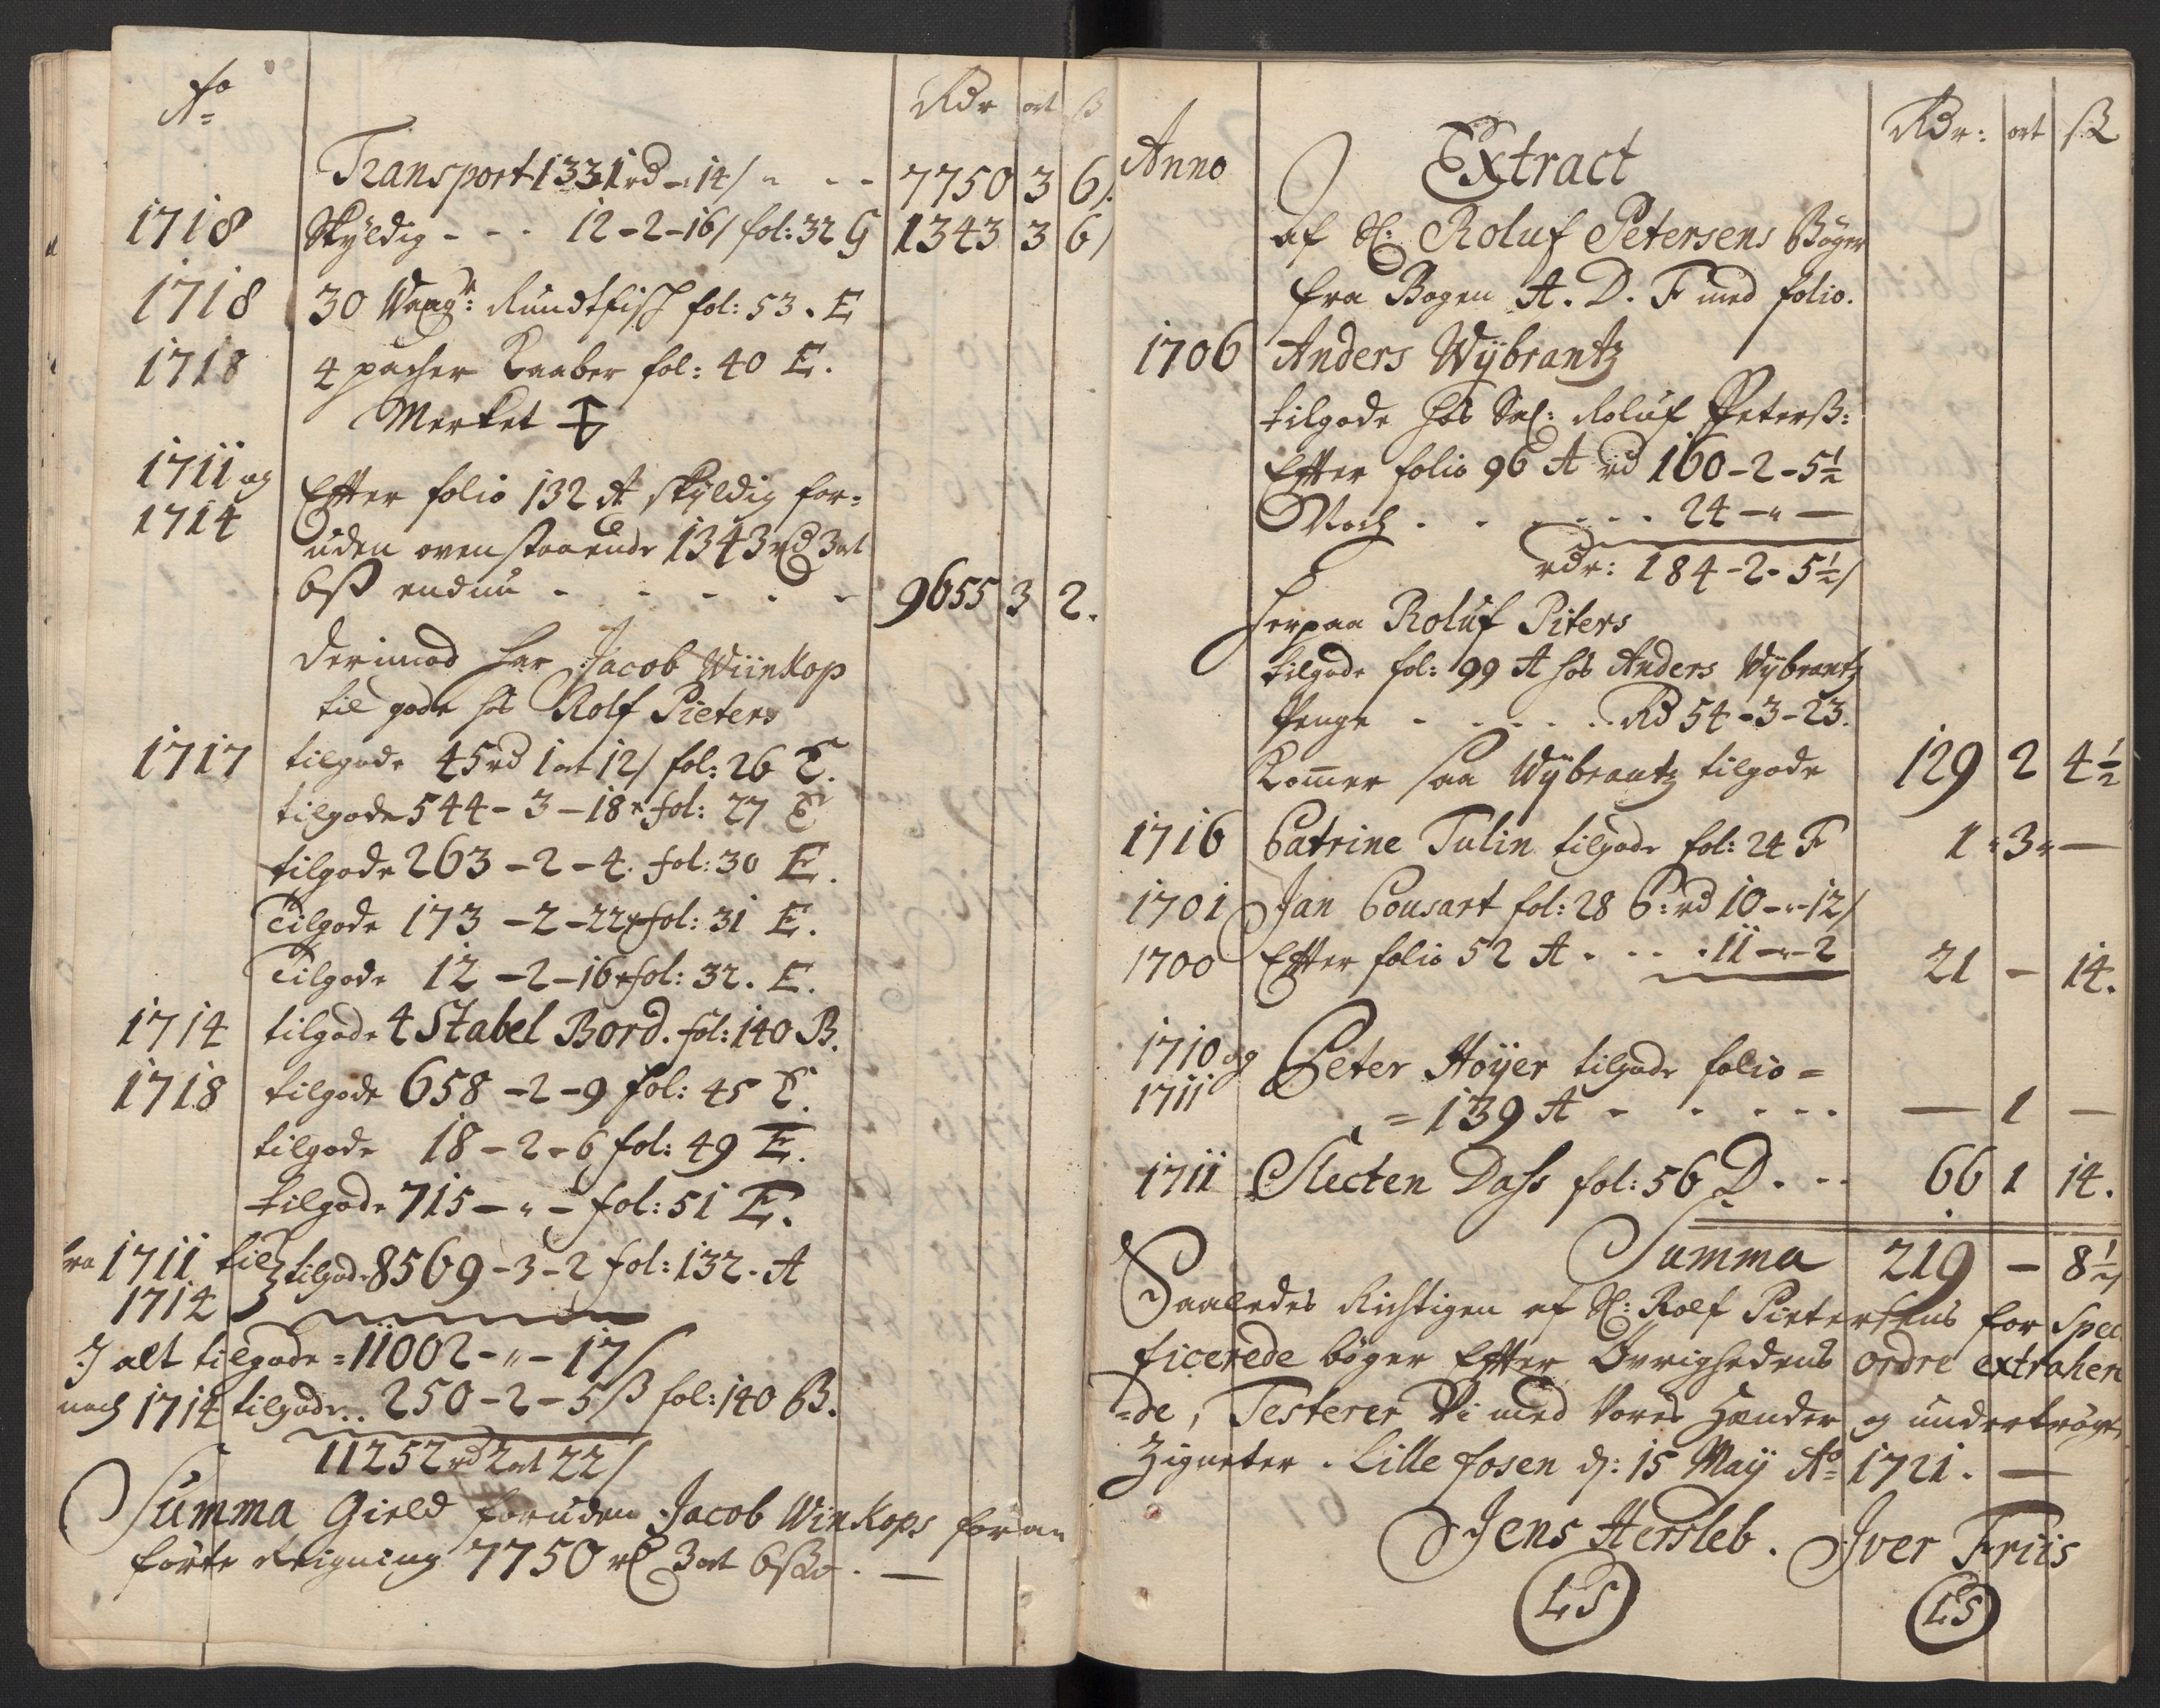 Ao
Rdr ort ß
Transport 1331rd -" 14/ " - - 7750 3 6/.
1718 Skÿldig - - - 12-2-16/ fol: 32 G 1343 3 6/
1718 30 Waagr: Rundtfisch fol: 53. E
1718 4 packer Kaaber fol: 40 E.
Merket
1711 og
1714
Efter folio 132 A skÿldig for=
uden ovenstaaende 1343rd 3ort
6ß endnu - - - - - 9655 3 2.
Derimod har Jacob Wiinkop
til gode hos Rolf Pieters
1717 tilgode 45rd 1ort 12/ fol: 26 E.
tilgode 544-3-18 fol: 27 E
tilgode 263-2-4. fol: 30 E.
Tilgode 173-2-22 fol: 31 E.
Tilgode 12-2-16 fol: 32. E.
1714 tilgode 4 Stabel Bord. fol: 140 B.
1718 tilgode 658-2-9 fol: 45 E.
tilgode 18-2-6 fol: 49 E.
tilgode 715-"- fol: 51 E.
fra 1711 til
1714
tilgode 8569-3-2 fol: 132. A
I alt tilgode = 11002-"-17/
noch 1714 tilgode.. 250-2-5/ß fol: 140 B.
11252rd 2ort 22/
Summa Gield foruden Jacob Winkops foran
førte Reigning 7750 rd 3ort 6ß. —
Anno
Rdr: ort ß
Extract
af Sl: Roluf Petersens Bøger
fra Bogen A. D. F med folio.
1706 Anders Wÿbrantz
tilgode hos Sal: Roluf Peterß:
Efter folio 96 A rd 160-2-5½
Noch . . . . . . 24 -"-
rdr: 184-2-5½/
Herpaa Roluf Piters
tilgode fol: 99 A hos Anders Wÿbrantz
Penge - - . . . Rd 54-3-23.
Kommer saa Wÿbrantz tilgode 129 2 4½
1716 Catrine Tulin tilgode fol: 24 F 1 " 3 " —
1701 Jan Cousart fol: 28 C: rd 10-"-12/
1700 Efter folio 52 A . . . . 11-"-2 21 - 14.
1710 og
1711
Peter Høÿer tilgode folio =
= 139 A - - - - - — 1 —
1711 Slecten Dass fol: 56 D. - - 66 1 14.
Summa 219 - 8½
Saaledes Richtigen af Sl: Rolf Pietersens for Speci
ficerede bøger Efter Øvrighedens ordre extraheren
=de, Testerer Vi med Vores Hænder og undertrøgte
Zigneter. Lille fosen d: 15 Maÿ Ao 1721. —
Jens Hersleb. Iver Friis
LS LS